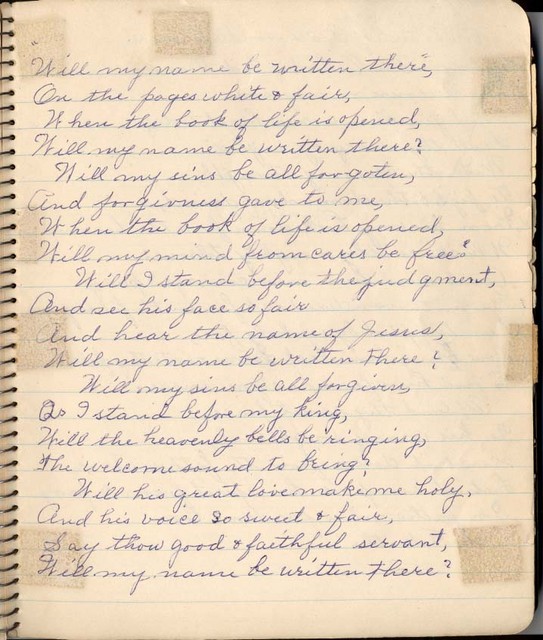 "Will my name be written there",
On the pages white & fair,
When the book of life is opened,
Will my name be written there?
Will my sins be all forgoten,
And forgivness gave to me,
When the book of life is opened,
Will my mind from cares be free?
Will I stand before the judgment,
And see his face so fair
And hear the name of Jesus,
Will my name be written there?
Will my sins be all forgiven,
As I stand before my king,
Will the heavenly bells be ringing,
The welcome sound to bring?
Will his great love make me holy,
And his voice so sweet & fair,
Say thou good & faithful servant,
Will my name be written there?